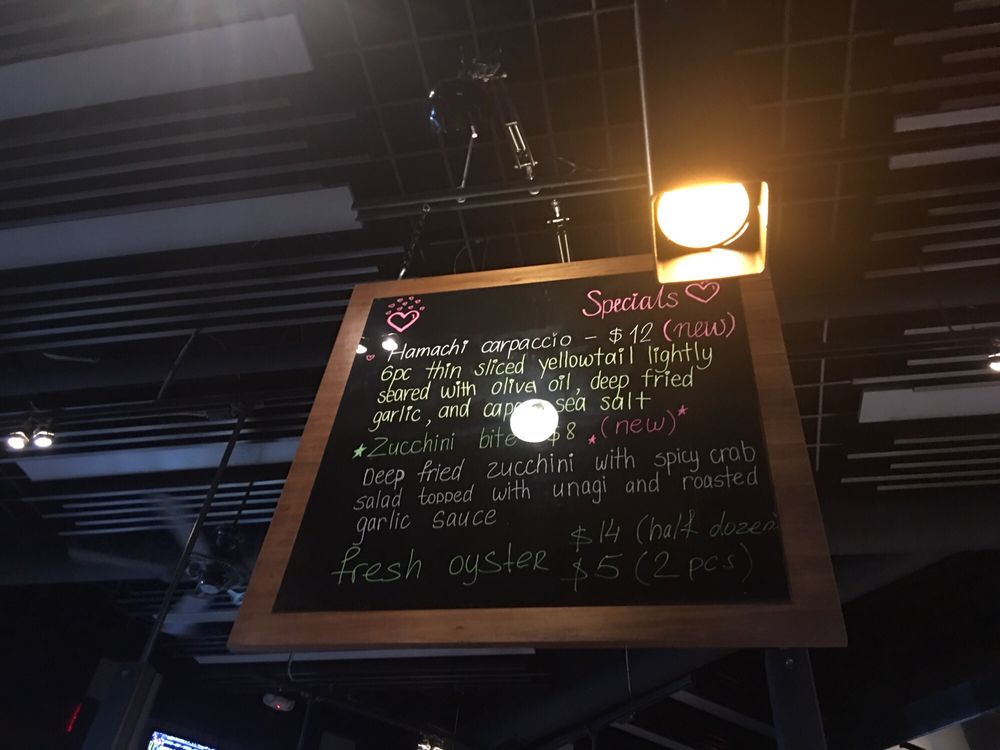 Specials
Hamachi carpaccio - $12 (new)
6pc thin sliced yellowtail lightly
seared with olive oil, deep fried
garlic, and sea salt
Zucchini $8 (new)
Deep fried zucchini with spicy crab
salad topped with unagi and roasted
garlic sauce
fresh oyster $14 (half dozen
$5 (2 pcs)